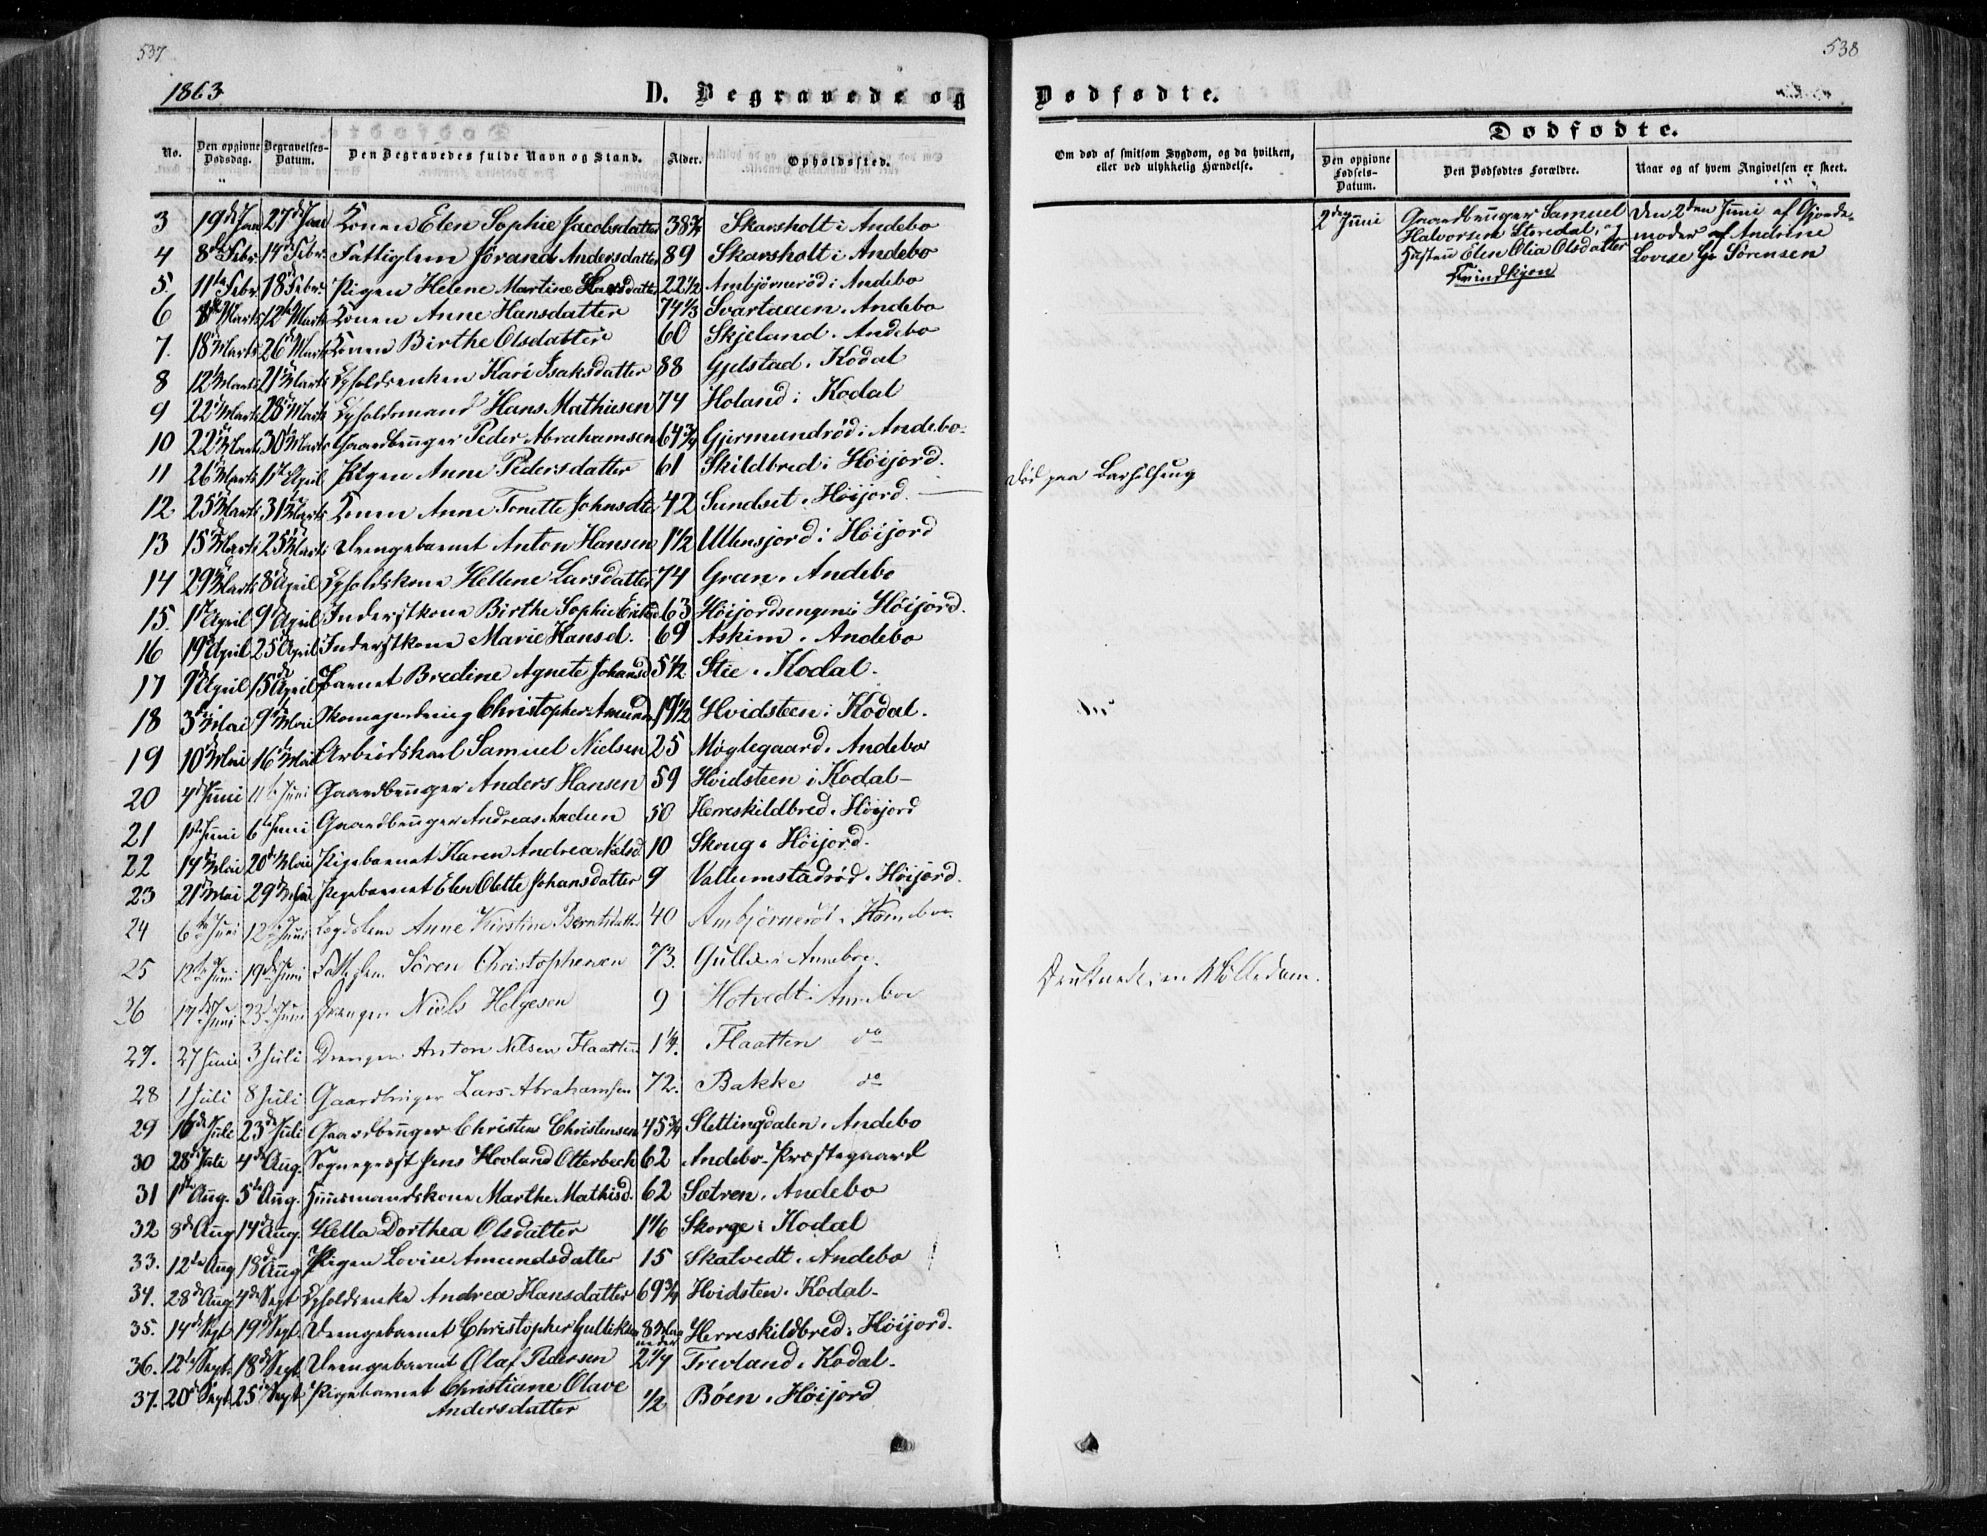 537
1863
D. Begravede og
No. Den opgivne Dødsdag. Begravelses-Datum. Den Begravedes fulde Navn og Stand. Alder. Opholdssted.
3 19de Jan 27de Jan Konen Elen Sophie Jacobsdatter 38¾ Skarsholt i Andebo
4 8de Febr. 14de Febr. Fattiglem Jørand Andersdatter 89 Skarsholt i Andebo
5. 11te Febr. 18de Febr. Pigen Helene Martine 22½ Ambjørnerød i Andebo
6 8de Marts 12te Marts Konen Anne Hansdatter 74⅓ Svartaaen i Andebo
7. 18de Marts 26de Marts Konen Birthe Olsdatter 60 Skjeland i Andebo
8 12te Marts 21de Marts Kari Isaksdatter 88 Gjelstad i Kodal
9 22de Marts 28de Marts Hans Mathiesen 74 Holand i Kodal
10 22de Marts 30te Marts Gaardbruger Peder Abrahamsen 64¾ Gjermundrød i Andebo
11 26de Marts 1ste April Pigen Anne Pedersdatter 61 Skildbred i Höijord.
12 25de Marts 31te Marts Konen Anne Tonette Johnsdtr 42 Sundset i Höijord.
13 15de Marts 25de Marts Drengebarnet Anton Hansen 1½ Ullensjord i Höijord
14 29de Marts 8de April Hellene Larsdatter 74 Gran i Andebo
15. 1ste April 9de April Inderstkone Birthe Sophie 63 Höijordsengen i Höijord.
16 19de April 25de April Inderstkone Marie Hansd. 69 Askim i Andebo
17 9de April 15de April Barnet Bredine Agnete Johansd 5½ Stie i Kodal.
18 3de Mai 9de Mai Christopher 19½ Hvidsteen i Kodal.
19 10de Mai 16de Mai Arbeidskarl Samuel Nielsen 25 Møglegaard i Andebo
20 4de Juni 11te Juni Gaardbruger Anders Hansen 59 Hvidsteen i Kodal
21 1ste Juni 6te Juni Gaardbruger Andreas 50 Herreskildbred i Höijord
22 14de Mai 20de Mai Pigebarnet Karen Andrea Nielsd. 10 Skoug i Höijord.
23 21de Mai 29de Mai Pigebarnet Elen Olette Johansdatter 9 Vallumstadrød i Höijord.
24 6te Juni 12te Juni Anne Kirstine Berntsdatter 40 Ambjørnerød i
25 12te Juni 19de Juni Søren Christophersen 73. Gulli i
26 17de Juni 23de Juni Drengen Niels Helgesen 9 Hotvedt i
27. 27 Juni 3 Juli Drengen Anton Nilsen Flaatten 1¼. Flaatten do
28 1 Juli 8 Juli Gaardbruger Lars Abrahamsen 72. Bakke do
29 16de Juli 23de Juli Gaardbruger Christen Christensen 45¾ Slettingdalen i Andebo
30 28de Juli 4de Aug. Sognepræst Jens Hovland Otterbech 62 Andebo Præstegaard
31 1ste Aug. 5te Aug. Huusmandskone Marthe Mathisd. 62 Sætren i Andebo
32 8de Aug 14de Aug. Hella Dorthea Olsdatter 1⅙ Skorge i Kodal
33. 12te Aug 18de Aug Pigen Lovise Amundsdatter 15 Skatvedt i Andebo
34. 28de Aug. 4de Sept Andrea Hansdatter 69¾ Hvidsten i Kodal
35. 14de Sept 19de Sept. Drengebarnet Christopher 8 Maaneder Herreskildbred i Höijord.
36. 12te Sept. 18de Sept. Drengebarnet Olaf Pedersen Trevland i Kodal
37. 20de Sept 25de Sept Pigebarnet Christiane Olave ½ Bøen i Höijord
Andersdatter
538
Dødfødte.
Dødfødte.
Om død af smitsom Sygdom, og da hvilken, eller ved ulykkelig Hændelse. Den opgivne Fødsels-Datum. Den Dødfødtes Forældre. Naar og af hvem Angivelsen er skeet.
2den Juni Gaardbruger Samuel Den 2den Juni af Gjorde-
Halvorsen Storedal, og moder Andrine
Hustru Elen Olia Olsdatter Lovise Sørensen
Tvindkjøn
Død paa Barselseng
Druknede i en Mølledam.